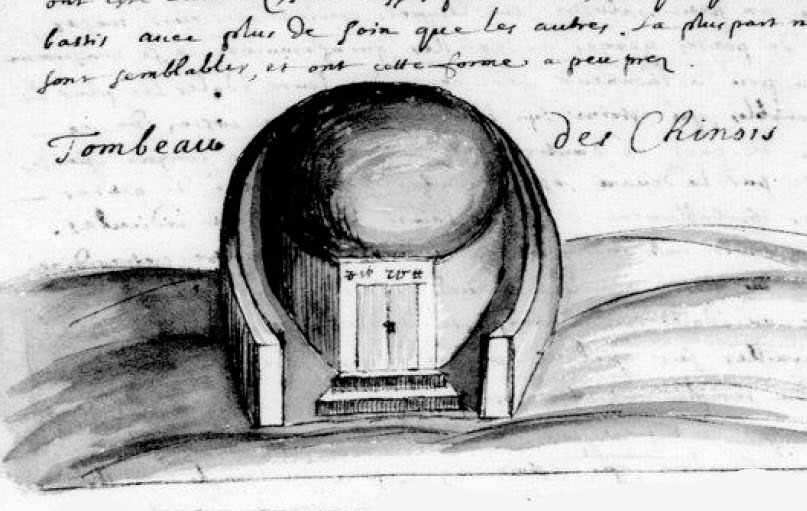 bastis avec plus de soin que les autres. La pluspart
sont semblables, et ont cette forme a peu prez.
Tombeau des Chinois